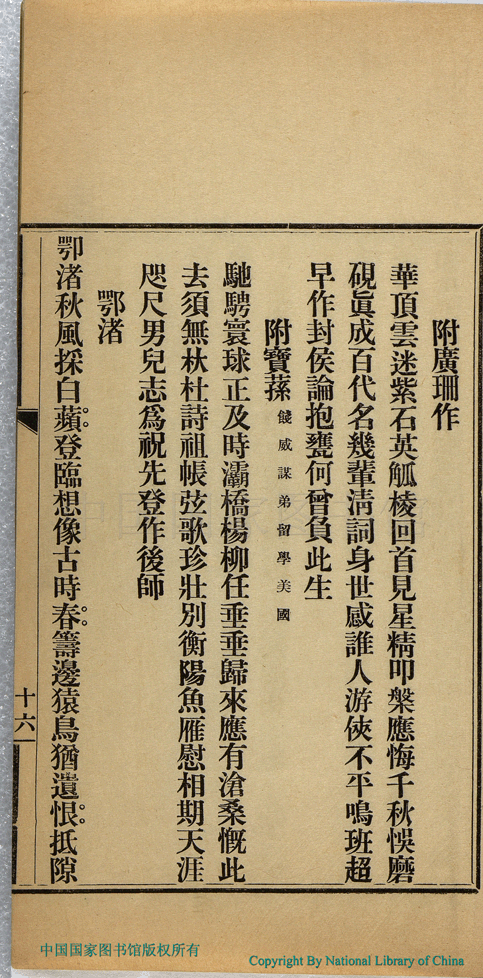 附廣珊作
華頂雲迷紫石英觚棱回首見星精叩槃應悔千秋悞磨
硯眞成百代名幾輩淸詞身世感誰人游俠不平鳴班超
早作封侯論抱甕何曾負此生
附寶蓀 餞威謀弟留學美國
馳騁寰球正及時灞橋楊柳任垂垂歸來應有滄桑慨此
去須無杕杜詩祖帳弦歌珍壯別衡陽魚雁慰相期天涯
咫尺男兒志爲祝先登作後師
鄂渚
鄂渚秋風採白蘋登臨想像古時春籌邊猿鳥猶遺恨抵隙
十六
中国国家图书馆
中国国家图书馆版权所有
Copyright By National Library of China